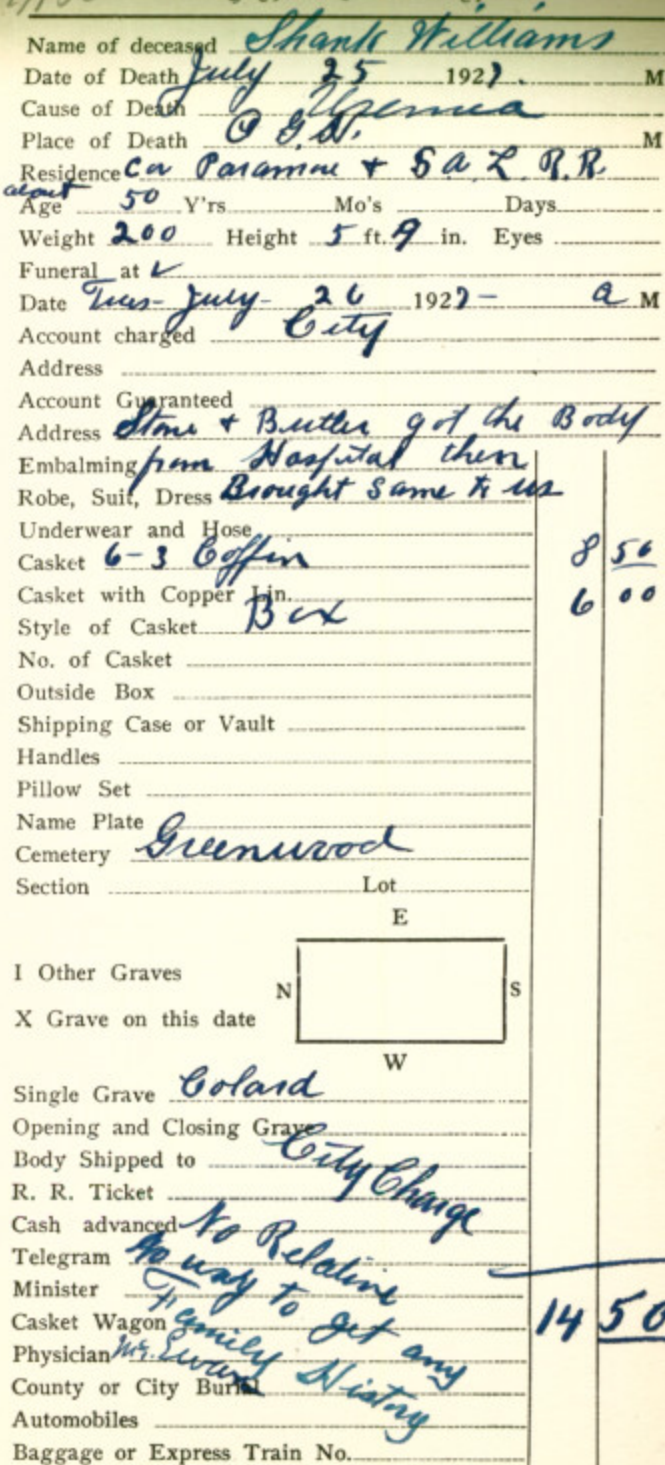 Name of deceased Shank Williams
Date of Death July 25 1927. M
Cause of Death Uremia
Place of Death O G H. M
Residence Cor Paramore & S a L R.R.
about
Age 50 Y'rs Mo's Days
Weight 200 Height 5 ft. 9 in. Eyes
Funeral at ✓
Date Tues- July- 26 1927- a M
Account charged City
Address
Account Guaranteed
Address Stone & Butler got the Body
Embalming from Hospital then
Robe, Suit, Dress Brought Same to us
Underwear and Hose
Casket 6-3 Coffin 8 50
Casket with Copper Lin. 6 00
Style of Casket Box
No. of Casket
Outside Box
Shipping Case or Vault
Handles
Pillow Set
Name Plate
Cemetery Greenwood
Section Lot
E
I Other Graves
N S
X Grave on this date
W
Single Grave Colard
Opening and Closing Grave
Body Shipped to City Charge
R. R. Ticket
Cash advanced No Relative
Telegram No way to get any
Minister Family History
Casket Wagon 14 50
Physician Mr. Swan
County or City Burial
Automobiles
Baggage or Express Train No.